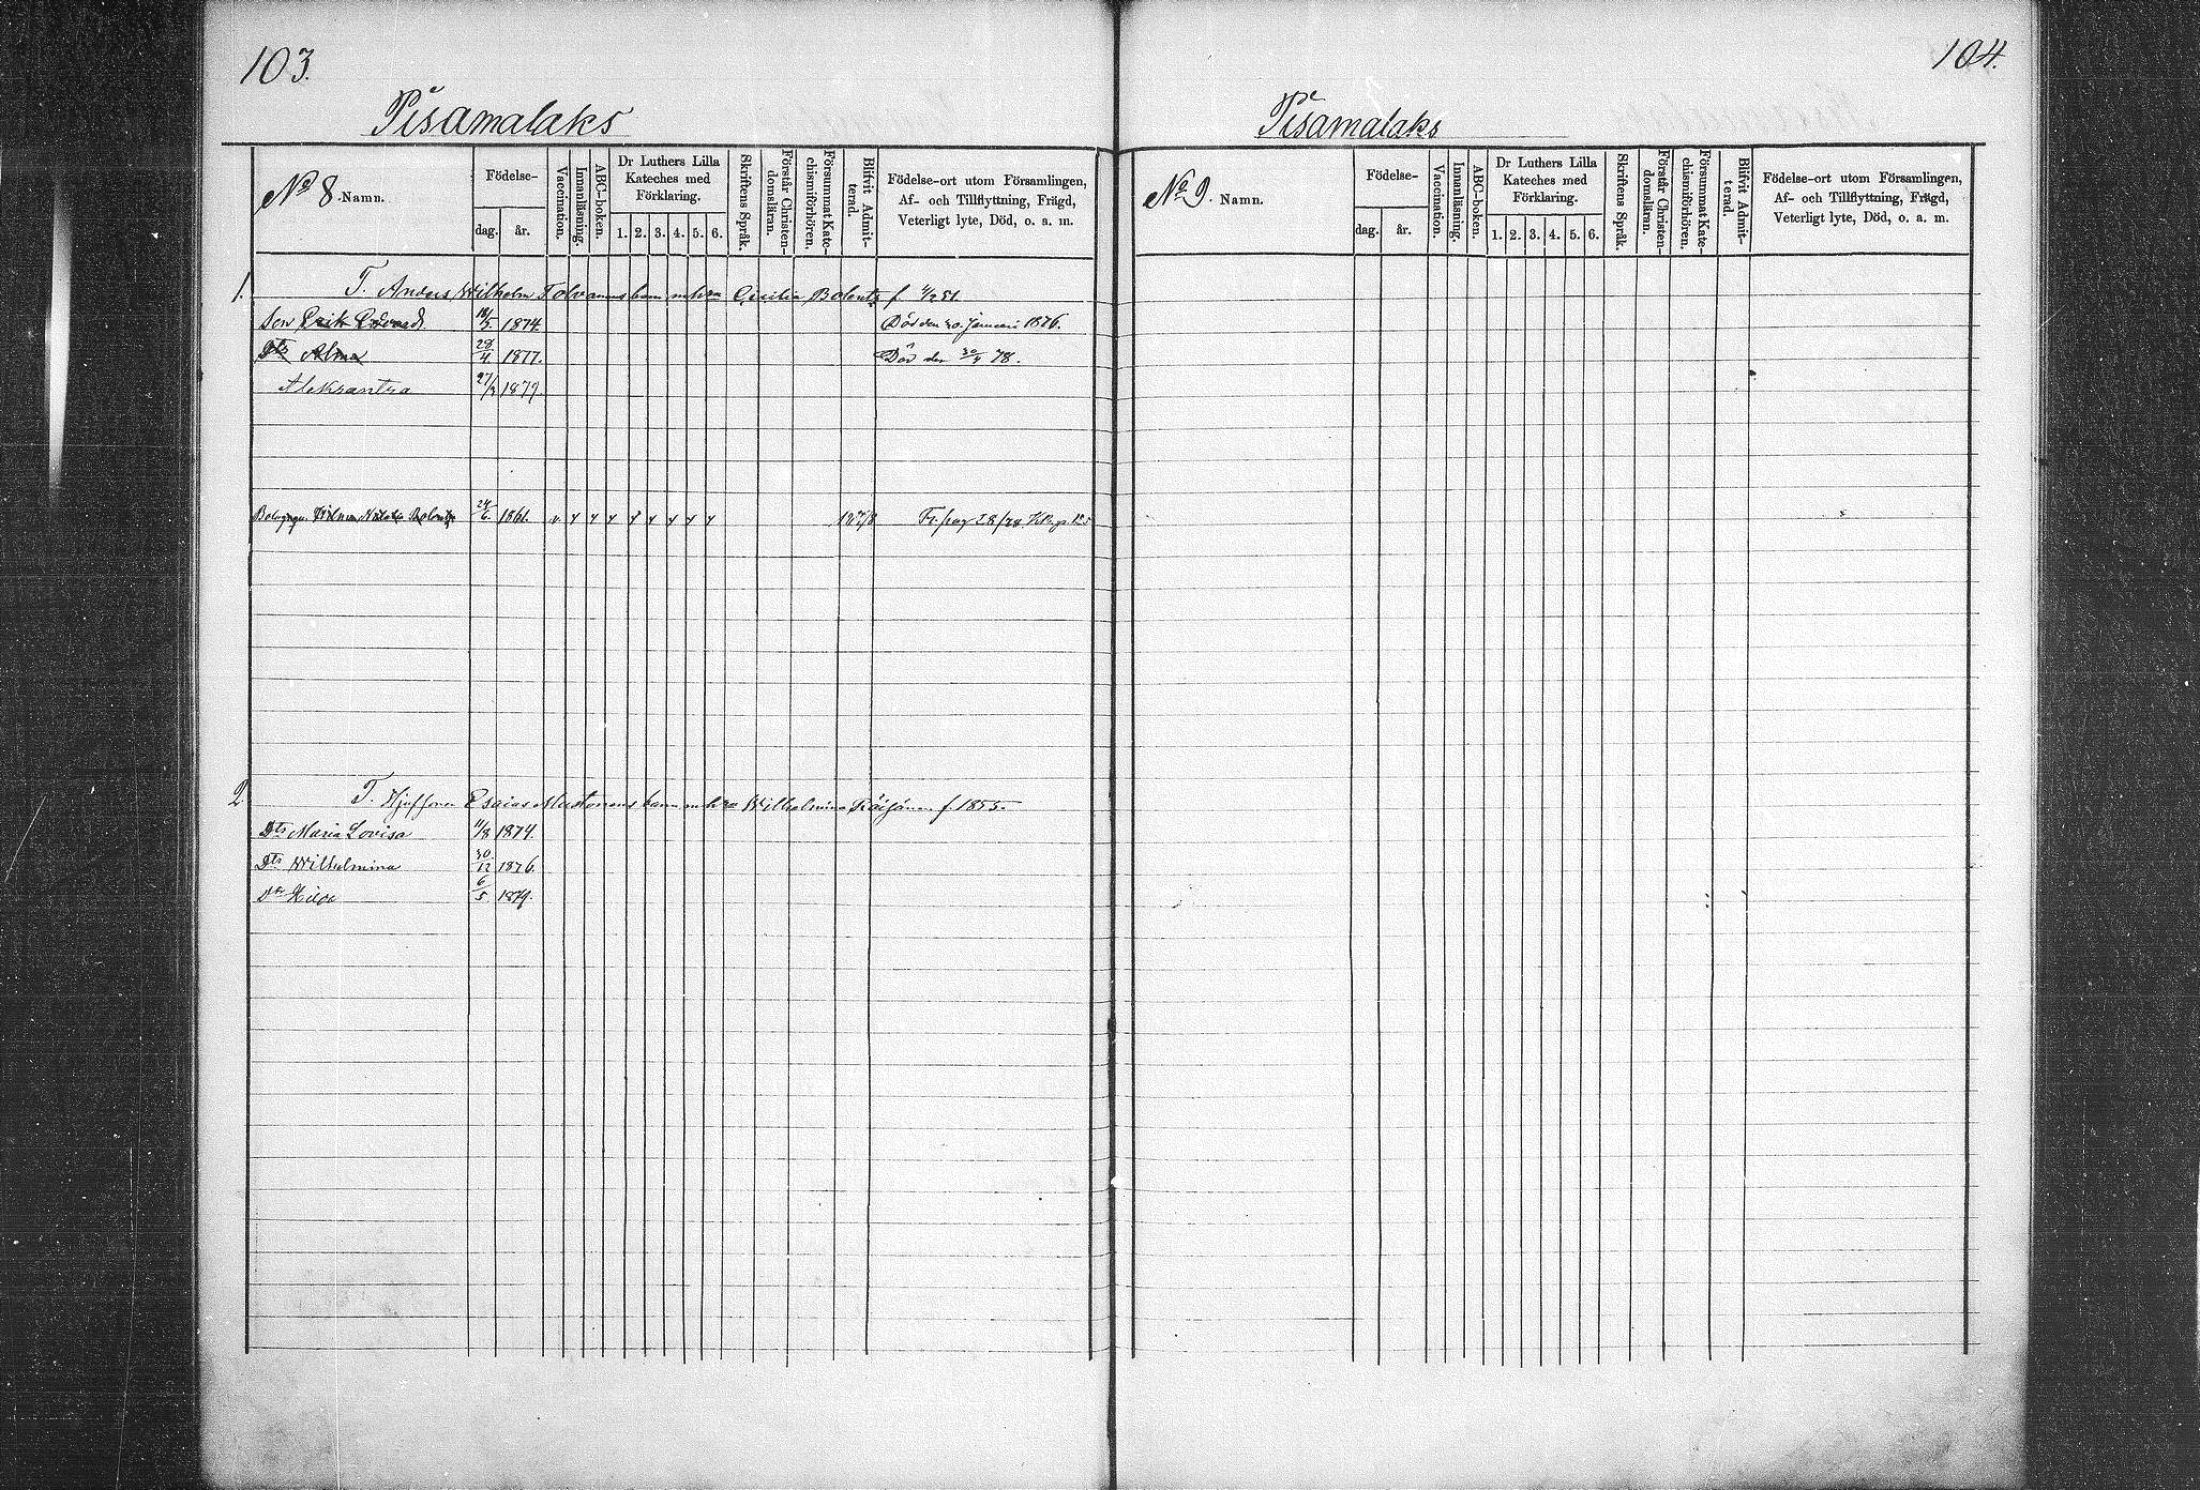 103.
Pisamalaks
No 8. Namn.
Födelse-
dag. år.
Vaccination.
Innanläsning.
ABC-boken.
Dr Luthers Lilla Kateches med Förklaring.
1. 2. 3. 4. 5. 6.
Skriftens Språk.
Förstår Christen-domsläran.
Försummat Kate-chismiförhören.
Blifvit Admit-terad.
Födelse-ort utom Församlingen,
Af- och Tillflyttning, Frägd,
Veterligt lyte, Död, o. a. m.
1. T. Anders Wilhelm Tolvanens barn m hra Cicilia f 51.
Son Erik Edvard 18/5 1874. Död den 20 Januari 1876.
Dtr Alma 28/4 1877. Död den 78.
Aleksantra 27/2 1879.
24/6 1861. 1878
2. T. Esaias Mustonens barn m hra Wilhelmina f. 1855.
Dtr Maria Lovisa 11/8 1874.
Dtr Wilhelmina 30/12 1876.
Dtr 6/5 1879.
104.
Pisamalaks
No 9. Namn.
Födelse-
dag. år.
Vaccination.
Innanläsning.
ABC-boken.
Dr Luthers Lilla Kateches med Förklaring.
1. 2. 3. 4. 5. 6.
Skriftens Språk.
Förstår Christen-domsläran.
Försummat Kate-chismiförhören.
Blifvit Admit-terad.
Födelse-ort utom Församlingen,
Af- och Tillflyttning, Frägd,
Veterligt lyte, Död, o. a. m.